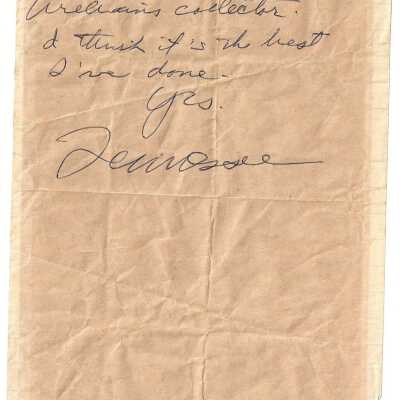 collector.
I think it is the best
I've done.
Yrs.
Tennessee